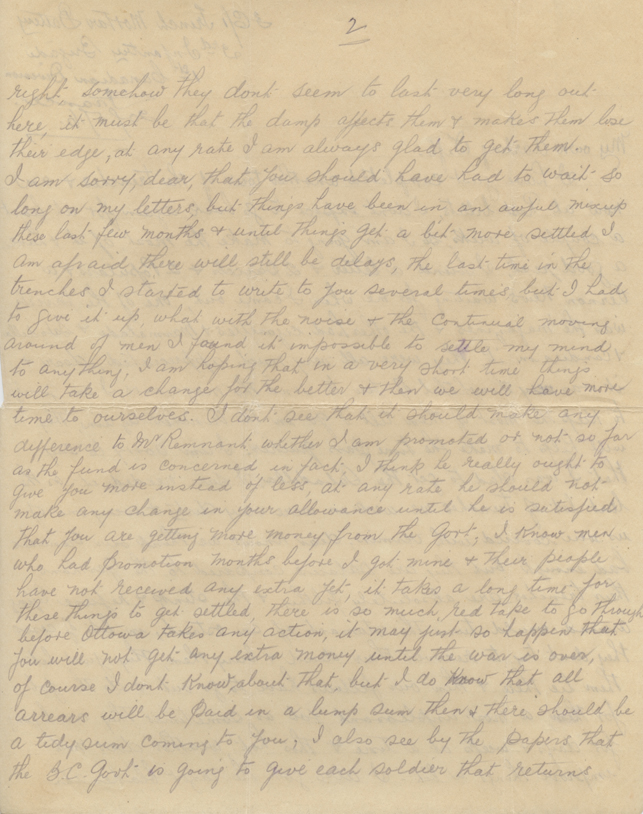 2
right somehow they dont seem to last very long out
here, it must be that the damp affects them & makes them lose
their edge, at any rate I am always glad to get them.
I am sorry, dear, that you should have had to wait so
long on my letters, but things have been in an awful mixup
these last few months & until things get a bit more settled I
am afraid there will still be delays, the last time in the
trenches I started to write to you several times but I had
to give it up what with the noise & the continual moving
around of men I found it impossible to settle my mind
to anything, I am hoping that in a very short time things
will take a change for the better & then we will have more
time to ourselves. I dont see that it should make any
difference to Mr Remnant whether I am promoted or not so far
as the fund is concerned, in fact, I think he really ought to
give you more instead of less, at any rate he should not
make any change in your allowance until he is satisfied
that you are getting more money from the Govt, I know men
who had promotion months before I got mine & their people
have not received any extra yet, it takes a long time for
these things to get settled, there is so much red tape to go through
before Ottowa takes any action, it may just so happen that
you will not get any extra money until the war is over,
of course I dont know, about that, but I do know that all
arrears will be paid in a lump sum then & there should be
a tidy sum coming to you, I also see by the papers that
the B.C. Govt is going to give each soldier that returns